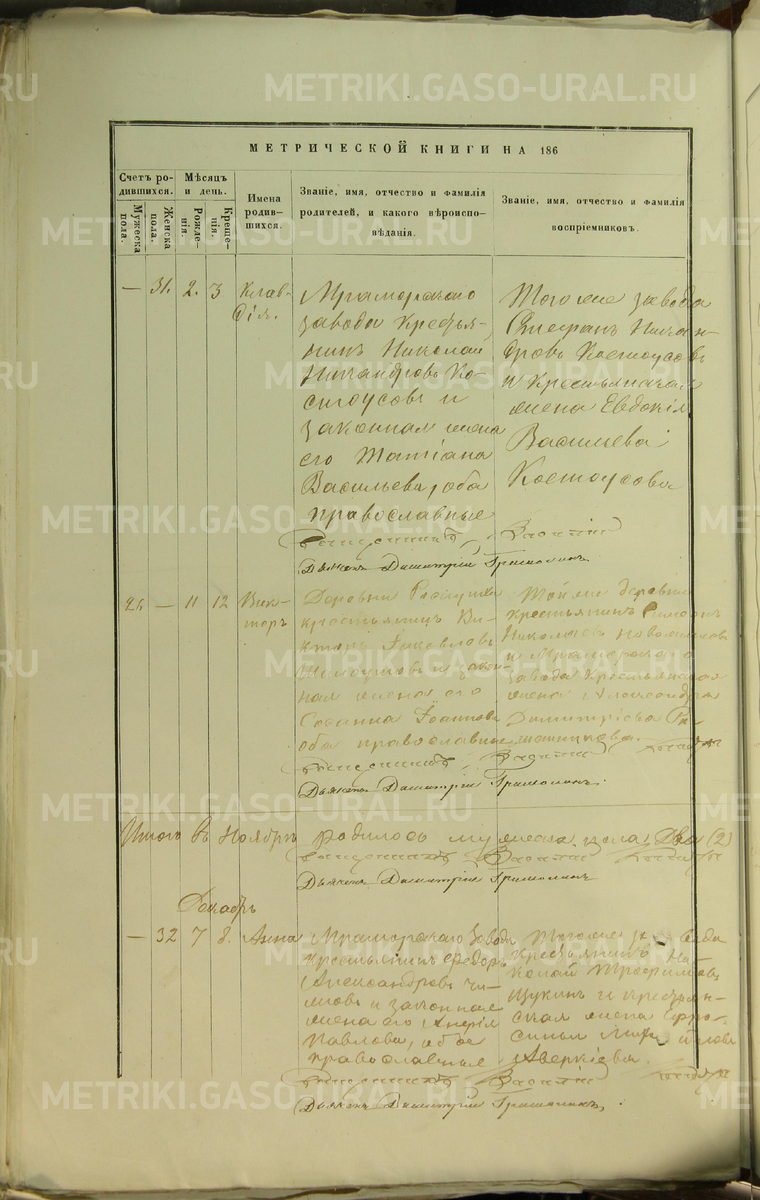 METRIKI.GASO-URAL.RU
МЕТРИЧЕСКОЙ КНИГИ НА 186
Счетъ родившихся.
Мужеска пола.
Женска пола.
Мѣсяцъ и день.
Рожденія.
Крещенія.
Имена родившихся.
Званіе, имя, отчество и фамилія
родителей, и какого вѣроиспо-
вѣданія.
Званіе, имя, отчество и фамилія
воспріемниковъ.
— 31. 2. 3
Клав-
дія.
Мраморскаго
завода крестья-
нинъ Николай
Никандровъ Ко-
стоусовъ и
законная жена
его Татіана
Васильева, оба
православные
Тогоже завода
Стефанъ Никан-
дровъ Костоусовъ
и крестьянская
жена Евдокія
Васильева
Костоусова
Священникъ
Дьяконъ Димитрій
26 — 11 12
Вик-
торъ
Деревни
крестьянинъ Ви-
кторъ Яковлевъ
и закон-
ная жена его
Сосанна Іоаннова
оба православные
Тойже деревни
крестьянинъ Симеонъ
Николаевъ
и Мраморскаго
завода крестьянская
жена Александра
Димитріева
Священникъ
Дьяконъ Димитрій
Итого въ Ноябрѣ родилось мужеска пола два (2)
Священникъ
Дьяконъ Димитрій
Декабрь
— 32 7 8.
Анна
Мраморскаго завода
крестьянинъ Федоръ
Александровъ
и законная
жена его
Павлова, обое
православные
Тогоже
крестьянинъ Ни-
колай Трофимовъ
Щукинъ и крестьян-
ская жена Ефро-
синья
Аверкіева.
Священникъ
Дьяконъ Димитрій